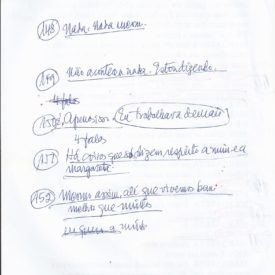 148 Nada. Nada mesmo.
149 Não acontece nada. Estou dizendo.
4 fotos
150 Apenas isso. Eu trabalhava demais
4 fotos
151 Há coisas que só dizem respeito a mim e a
margarete.
152 Mesmo assim, até que vivemos bem
melhor que muitos